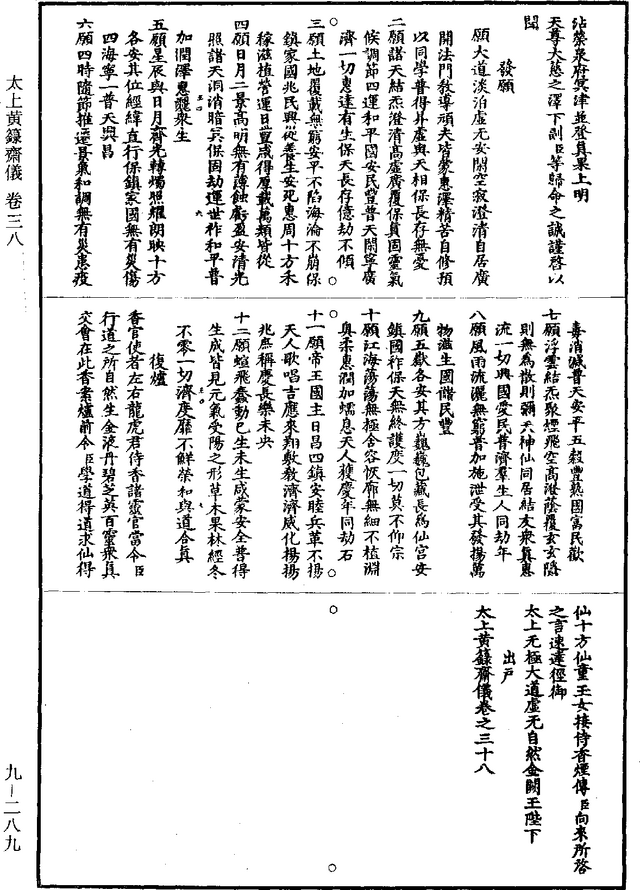 沾榮泉府冥津並登真果上明
天尊大慈之澤下副臣等歸命之誠謹啓以
聞
發願
願大道淡泊虛无安閑空寂澄清自居廣
開法門教導頑夫皆蒙惠澤精苦自修預
以同學普得昇虛與天相保長存無憂
二願諸天結炁澄清高虛廣覆保真固靈氣
候調節四運和平國安民豐普天閑寧廣
濟一切惠逮有生保天長存億劫不傾
三願土地覆載無窮安平不陷海淪不崩保
鎮家國兆民興從養生安死惠周十方禾
稼滋植營運日豐咸得厚載萬類皆從
四願日月二景高明無有薄蝕虧盈安清光
照諸天洞消暗冥保固劫運世祚和平普
加潤澤惠麗衆生
五願星辰與日月齊光轉燭照耀朗映十方
各安其位經緯直行保鎮家國無有災傷
四海寧一普天興昌
六願四時隨節推遷景氣和調無有災患疫
毒消滅普天安平五穀豐熟國富民歡
七願浮雲結炁散煙飛空高澄蔭覆玄玄隱
則無為散則彌天神仙同居結友衆真惠
流一切興國愛民普濟羣生人同劫年
八願風雨流灑無窮普加施泄受其發揚萬
物滋生國儲民豐
九願五嶽各安其方巍巍包藏長為仙宮安
鎮國祚保天無終護度一切莫不仰宗
十願江海蕩蕩無極含容恢廓無細不植淵
奥柔惠潤加蠕息天人獲慶年同劫石
十一願帝王國主日昌四鎮安睦兵革不揚
天人歌唱吉應來翔敷敷濟濟威化揚揚
兆庶稱慶長樂未央
十二願蝖飛蠢動已生未生咸蒙安全普得
生成皆見元氣受陽之形草木果林經冬
不零一切濟度靡不鮮榮和與道合真
復爐
香官使者左右龍虎君侍香諸靈官當令臣
行道之所自然生金液丹碧芝英百靈衆真
交會在此香案爐前令臣學道得道求仙得
仙十方仙童玉女接侍香煙傳臣向來所啓
之言速達徑御
太上无極大道虛无自然金闕玉陛下
出戶
太上黄籙齋儀卷之三十八
太上黄籙齋儀 卷三八
九—二八九